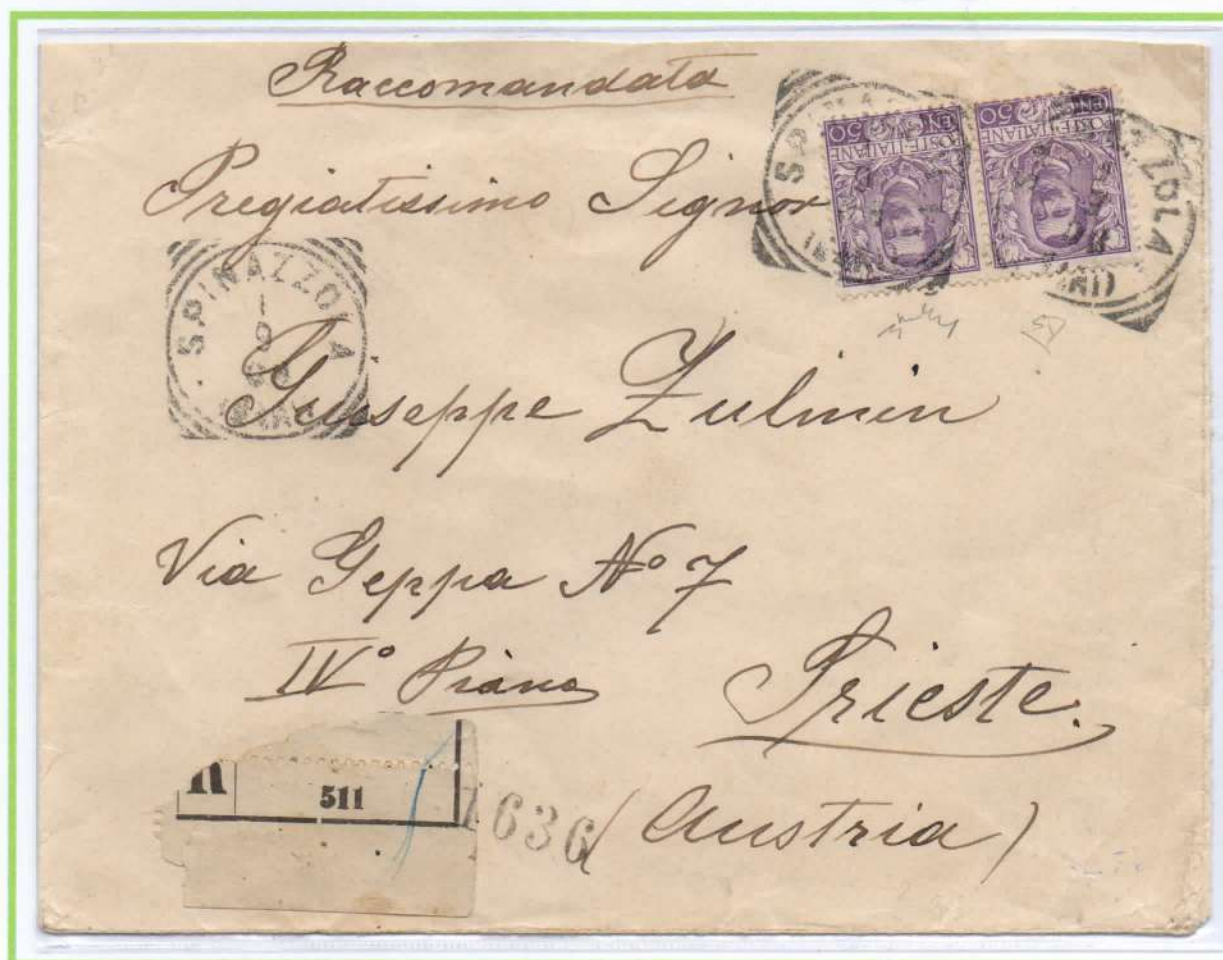 Raccomandata
Pregiatissimo Signor
CEN. 50
POSTE ITALIANE
CEN. 50
POSTE ITALIANE
SPINAZZOLA
Giuseppe Zulmin
Via Geppa Nº 7
IVº Piano
Trieste.
R 511
1636
(Austria)